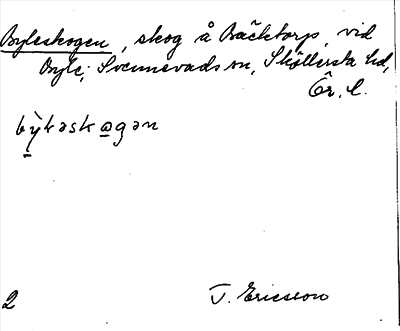 Byleskogen, skog å Bäcktorp, vid
Byle; Svennevads sn, Sköllersta hd,
Ör. l.
bỳkəsko̲gən
2 T. Ericsson